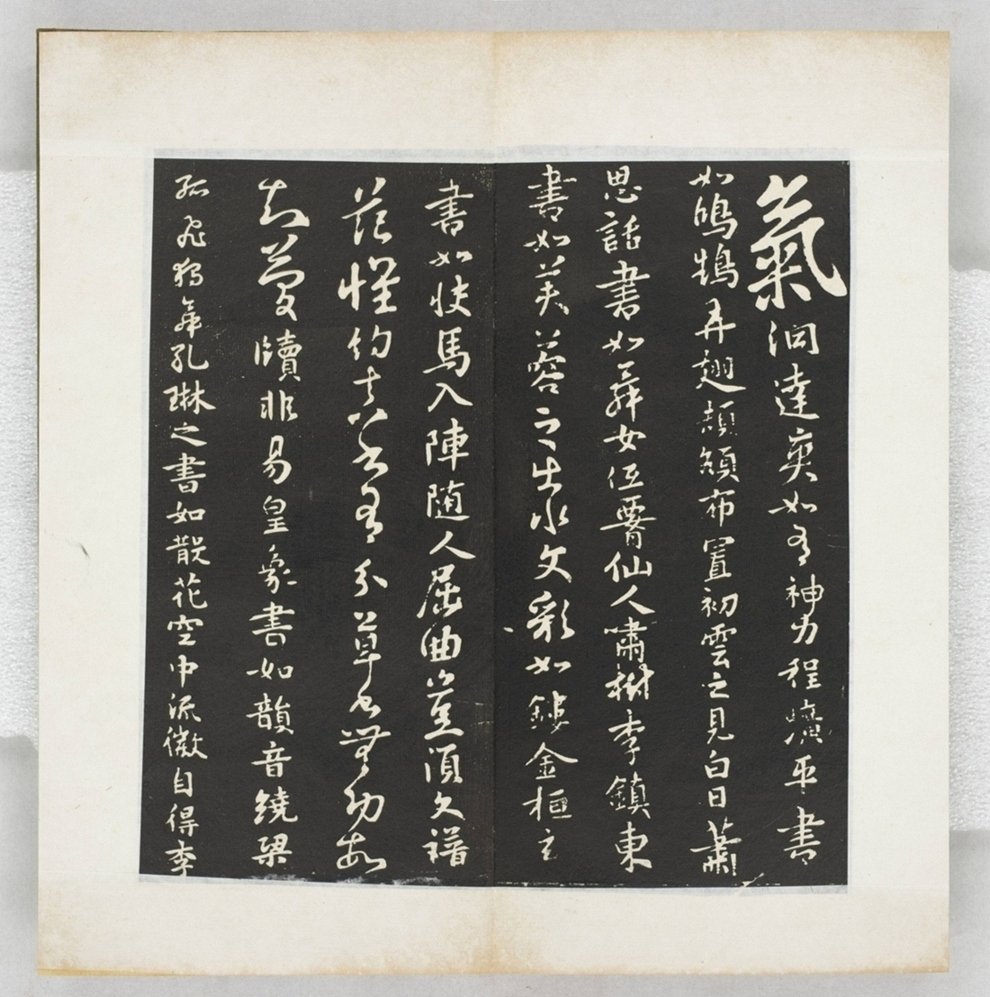 氣洞達爽如有神力程曠平書
如鴻鵠弄翅頡頏布置初雲之見白日蕭
思話書如舞女低腰仙人嘯樹李鎮東
書如芙蓉之出水文彩如鏤金桓玄
書如快馬入陣随人屈曲豈須文譜
范懷約真書有分草書無功故
知簡牘非易皇象書如韻音繞梁
孤飛獨舞孔琳之書如散花空中流徽自得李